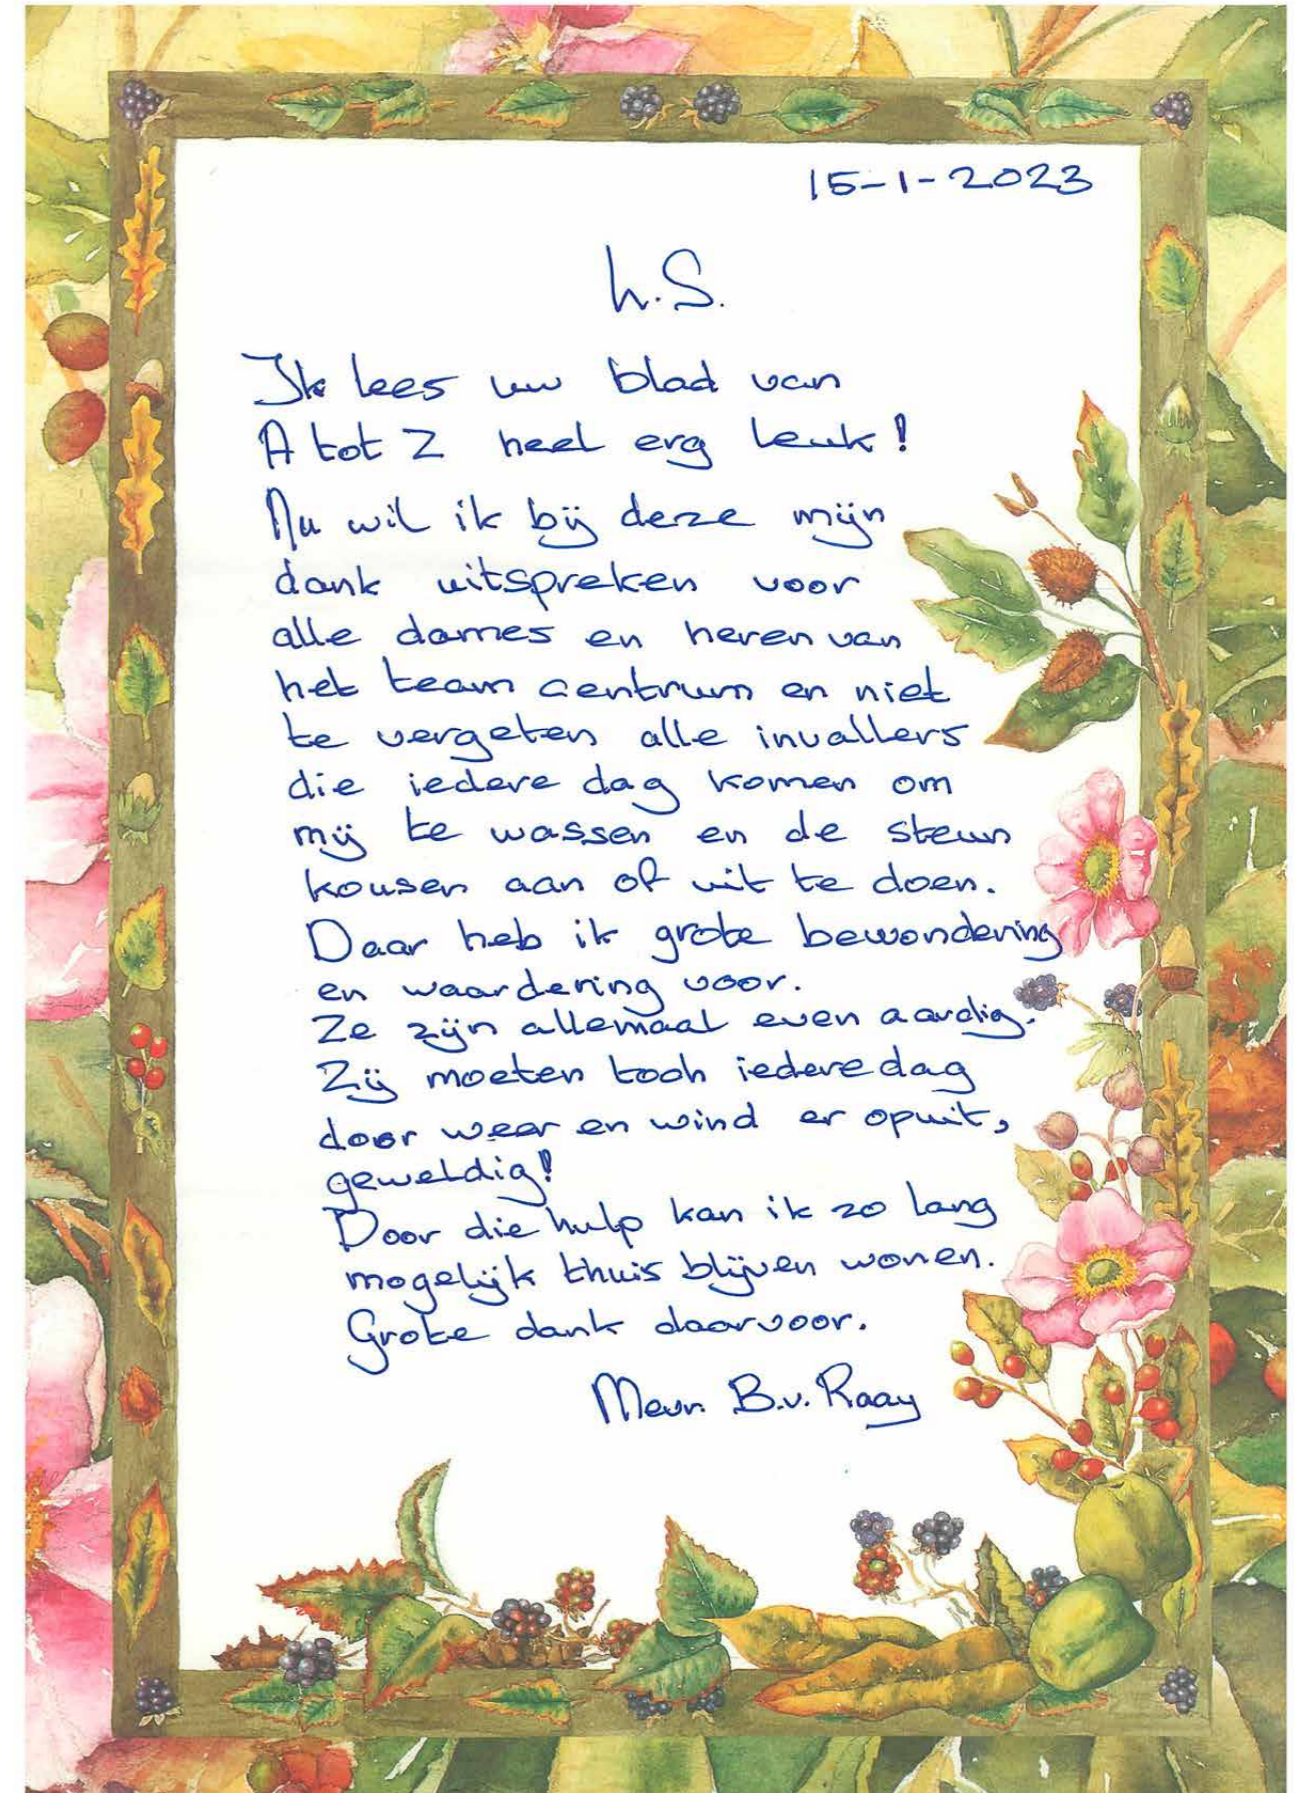 15-1-2023
L.S.
Ik lees uw blad van
A tot Z heel erg leuk!
Nu wil ik bij deze mijn
dank uitspreken voor
alle dames en heren van
het team centrum en niet
te vergeten alle invallers
die iedere dag komen om
mij te wassen en de steun
kousen aan of uit te doen.
Daar heb ik grote bewondering
en waardering voor.
Ze zijn allemaal even aardig.
Zij moeten toch iedere dag
door weer en wind er opuit,
geweldig!
Door die hulp kan ik zo lang
mogelijk thuis blijven wonen.
Grote dank daarvoor.
Mevr. B.v. Raay